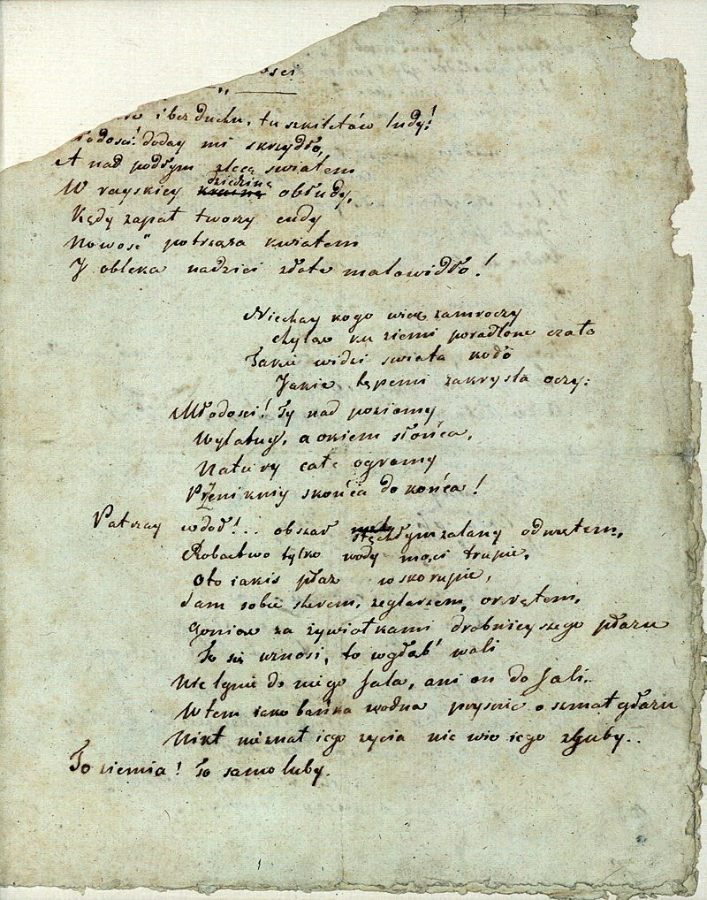 ości
i bez duchu, tu szkieletów ludy!
łodości! doday mi skrzydło,
A nad podłym zlecę swiatem
W rayskiey dziedzinę obłudy,
Kędy zapał tworzy cudy
Nowość potrząsa kwiatem
Y obleka nadziei złote malowidło!
Niechay kogo wiek zamroczy
Chyląc ku ziemi poradlone czoło
Takie widzi swiata koło
Jakie tępemi zakrysla oczy:
Młodości! Ty nad poziomy
Wylatuy, a okiem słońca,
Natury całe ogromy
Przenikniy z końca do końca!
Patrzay w doł!.. obszar stęchłym zalany odmętem,
Robactwo tylko wody mąci trupie,
Oto iakis płaz w skorupie,
Sam sobie sterem, zeglarzem, okrętem,
Goniąc za żywiołkami drobnieyszego płazu
To się wznosi, to w głąb' wali
Nie lgnie do niego fala, ani on do fali.
Wtem iako bańka wodna prysnie o szmat głazu
Nikt nieznał iego zycia nie wie iego zguby..
To ziemia! to samoluby.